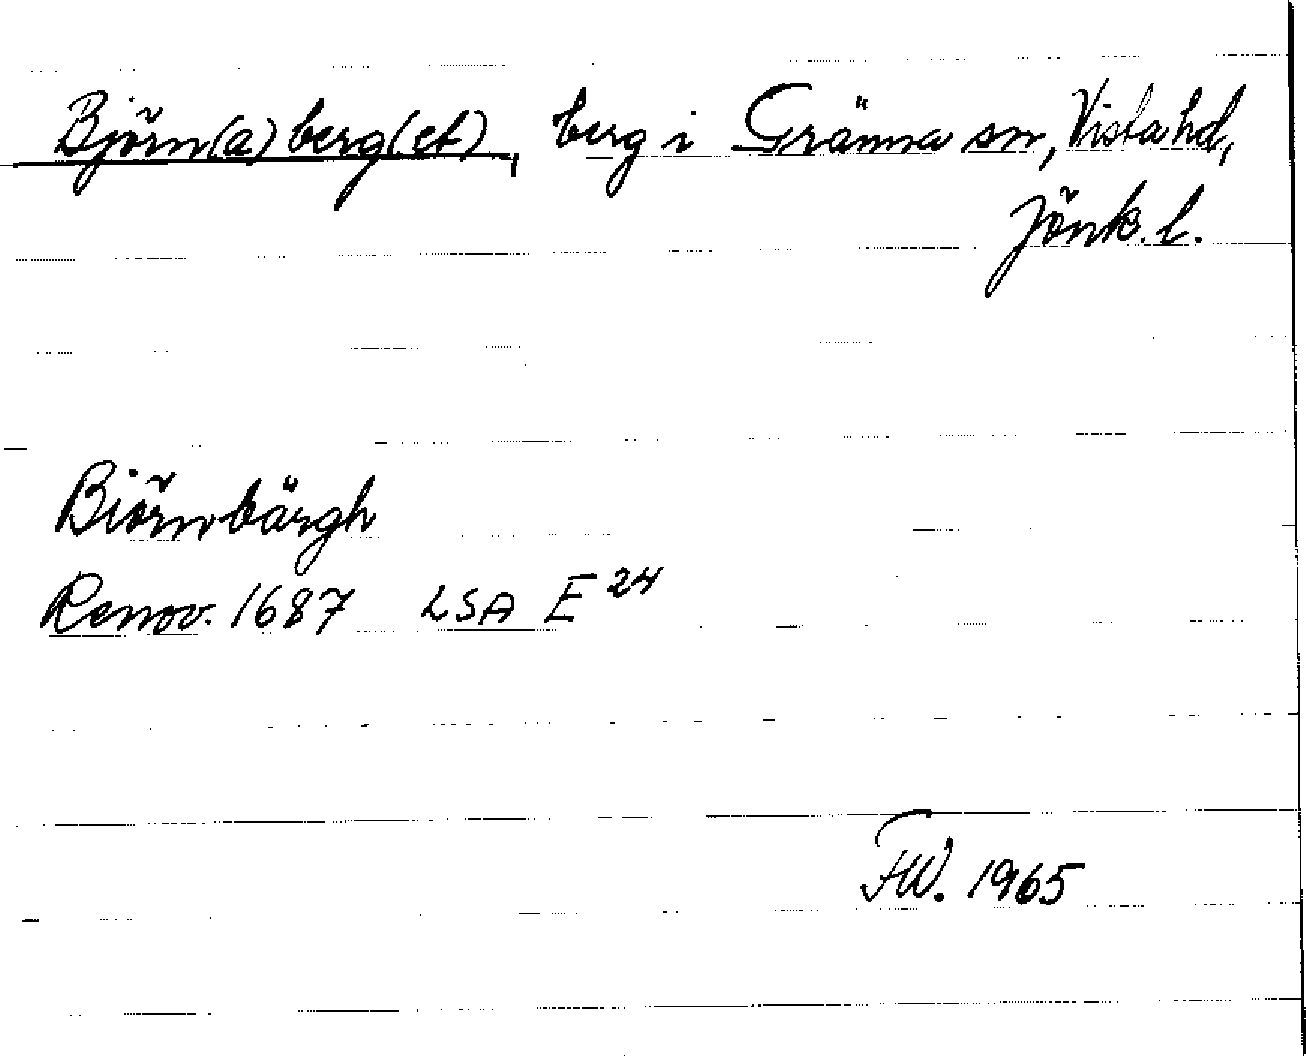 Björn(a)berg(et), berg i Gränna sn, Vista hd,
Jönk. l.
Biörnbärgh
Renov. 1687 LSA E 24
FW. 1965